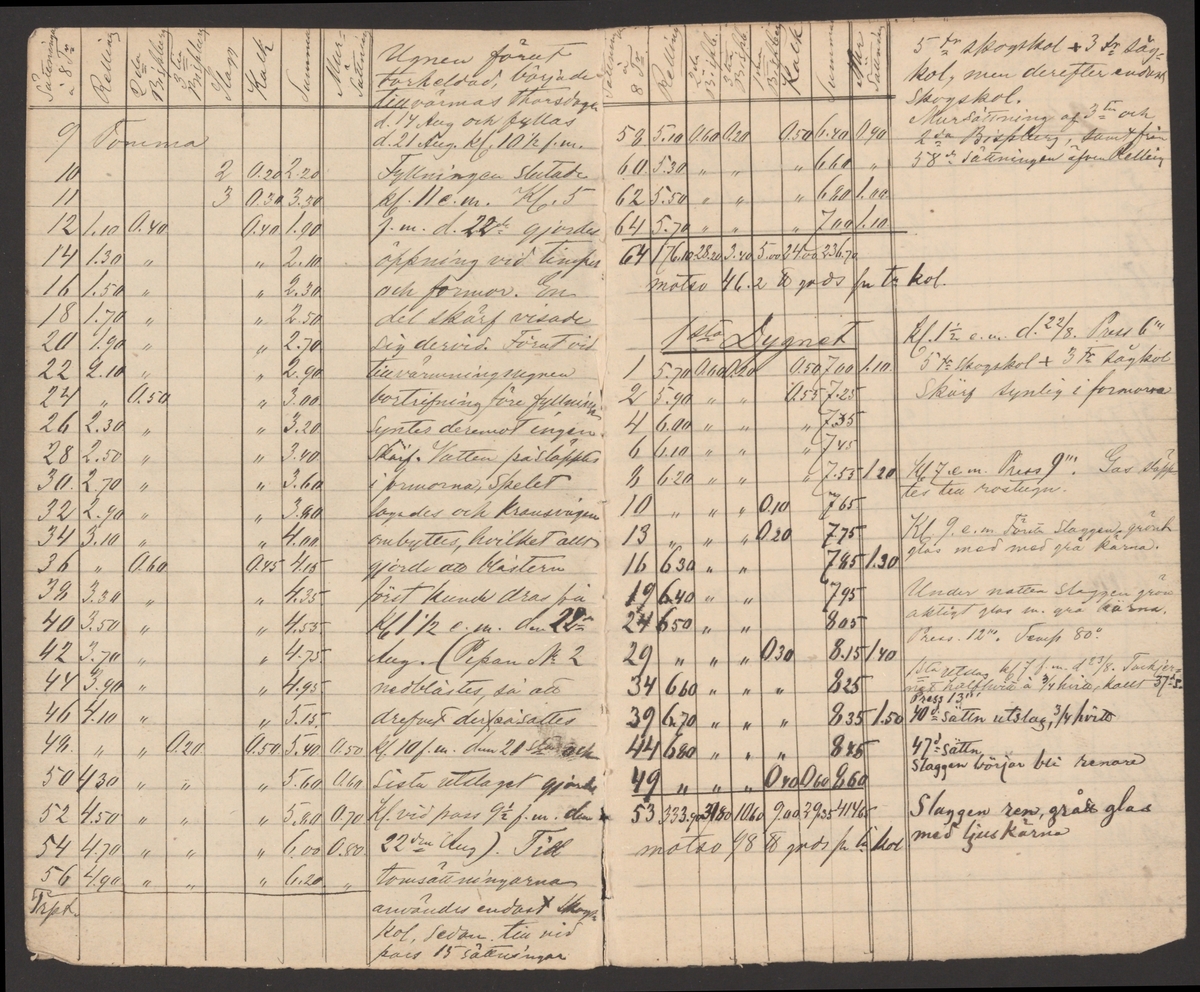 Sättningar à 8 Tr Relling 2dra Bispberg 3dje Bispberg Slagg Kalk Summa Mur-Sättning
9 Tomma
10 2 0.20 2.20
11 3 0.30 3.30
12 1.10 0.40 0.40 1.90
14 1.30 " " 2.10
16 1.50 " " 2.30
18 1.70 " " 2.50
20 1.90 " " 2.70
22 2.10 " " 2.90
24 " 0.50 " 3.00
26 2.30 " " 3.20
28 2.50 " " 3.40
30. 2.70 " " 3.60
32 2.90 " " 3.80
34 3.10 " " 4.00
36 " 0.60 0.45 4.15
38 3.30 " " 4.35
40 3.50 " " 4.55
42 3.70 " " 4.75
44 3.90 " " 4.95
46 4.10 " " 5.15
48. " " 0.20 0.50 5.40 0.50
50 4.30 " " " 5.60 0.60
52 4.50 " " " 5.80 0.70
54 4.70 " " " 6.00 0.80
56 4.90 " " " 6.20 "
Trpt.
Ugnen förut
torkeldad, började
tillvärmas Thorsdagen
d. 14 Aug och fyllas
d. 21 Aug. kl. 10½ f.m.
Fyllningen slutade
kl. 11 e.m. Kl. 5
f.m. d. 22de gjordes
öppning vid timpel
och formor. En
del skärf visade
sig dervid. Förut vid
tillvärmningsugnen
bortrifning före fyllningen
syntes deremot ingen
skärf. Vatten påsläpptes
i formorna, Spelet
lagades och Kransvägen
ombyttes, hvilket allt
gjorde att blästern
först kunde dras på
Kl 1 1/2 e.m. den 22dra
Aug. (Pipan No 2
nedblåstes, så att
drefvet der påsattes
kl. 10 f.m. den 21 och
Sista utslaget gjordes
Kl. vid pass 9½ f.m. den
22dra Aug). Till
tomsättningarna
användes endast skogs
kol, sedan till vid
pass 15 sättningar
Sättningar à 8 Tr. Relling 2dra Bispb. 3dje Bispb. Bispberg Kalk Summa Mur Sättning
58 5.10 0.60 0.20 0.50 6.40 0.90
60 5.30 " " " 6.60 "
62 5.50 " " " 6.80 1.00
64 5.70 " " " 7.00 1.10
64 176.10 28.20 3.40 5.00 24.00 236.70
motsv 46.2 ℔ gods pr tr kol.
1sta Dygnet
1 5.70 0.60 0.20 0.50 7.00 1.10
2 5.90 " " 0.55 7.25
4 6.00 " " " 7.35
6 6.10 " " " 7.45
8 6.20 " " " 7.55 1.20
10 " " " 0.10 " 7.65
13 " " " 0.20 7.75
16 6.30 " " 7.85 1.30
19 6.40 " " 7.95
24 6.50 " " 8.05
29 " " " 0.30 8.15 1.40
34 6.60 " " " 8.25
39 6.70 " " " 8.35 1.50
44 6.80 " " " " 8.45
49 " " " 0.40 0.60 8.60
53 333.90 31.80 10.60 9.00 29.35 414.65
motsv 98 ℔ gods pr tr kol
5 tr skogskol + 3 tr såg-
kol, men derefter endast
skogskol.
Mursättning af 3dje och
2dra Bispberg, samt från
58de Sättningen äfven Relling
Kl. 1½ e.m. d. 22/8. Press 6'''
5 tr skogskol + 3 tr sågkol
Skärf synlig i formorna
Kl 7 e.m. Press 9'''. Gas släpp
tes till rostugn.
Kl. 9 e.m. Första Slaggen, grönt
glas med med grå kärna.
Under natten Slaggen grön
aktigt glas m. grå kärna.
Press. 12'''. Temp 80°
1sta utslag kl 7 f.m. d 23/8. Tackjer-
net halfhvitt à 3/4 hvitt, kallt 37de S.
Press 13'''
40de sättn utslag, 3/4 hvitt
47de sättn.
Slaggen börjar bli renare
Slaggen ren, grått glas
med ljus kärna